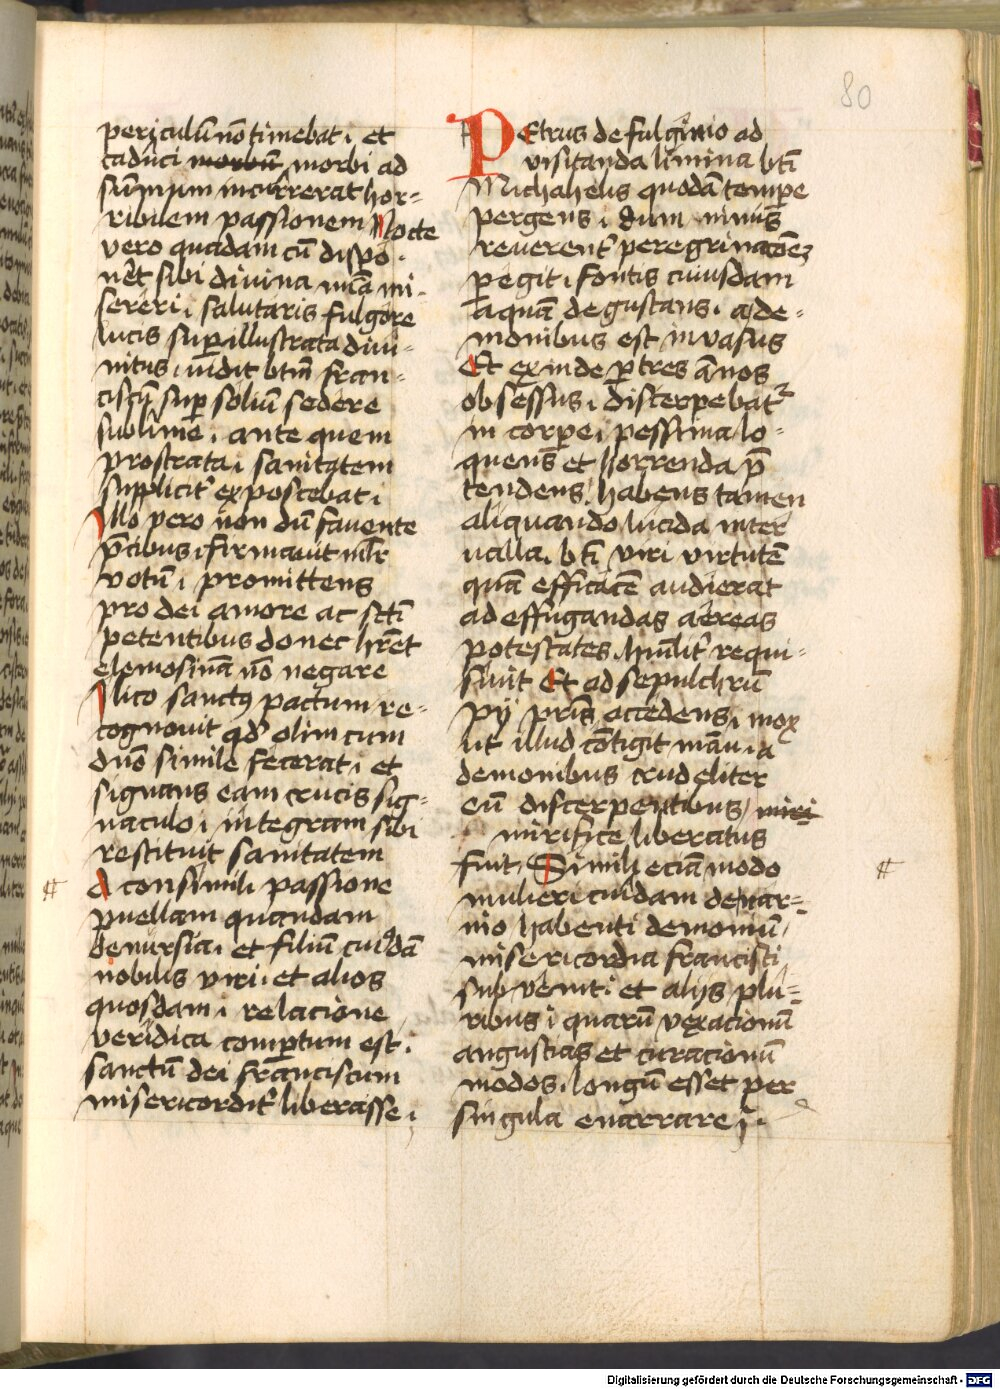 80
periculū nō timebat · et
caduci morbū morbi ad
sūmum incurrerat hor=
ribilem passionem Nocte
vero quadam cū dispo·
nēt sibi divina mīa mi·
sereri · salutaris fulgore
lucis suꝑ illustrata divi-
nitus · vidit btm̄ fran-
ciscū suꝑ soliū sedere
sublime · ante quem
prostrata · sanitatem
suplicitˀ exposcebat ·
Illo vero non dū favente
p̄cibus · firmavit mlr̄
votū · promittens
pro dei amore ac sc̄ti
petentibus donec hr̄et
elemosinā nō negare
Ilico sanctꝯ pactum re=
cognovit qd̓ olim cum
dn̄o simile fecerat · et
signans eam crucis sig=
naculo · integram sibi
restituit sanitatem
A consimili passione
puellam quandam
de nursia · et filiū cuiꝰdā
nobilis viri · et alios
quosdam · relacione
veridica comꝑtum est ·
sanctū dei franciscum
misericorditˀ liberasse ·
PEtrus de fulginio ad
visitanda limina bt̄i
Michahelis quodā tempe
pergens · dum minus
reverentˀ peregrinacōeꝫ
pegit · fontis cuiusdam
aquā degustans · a de=
monibus est invasus
Et exinde ꝑ tres ānos
obsessus · discerpebatˀ
in corpe · pessima lo=
quens et horrenda p̄
tendens habens tamen
aliquando lucida inter
ualla · bt̄i viri virtutē
quā efficacē audierat
ad effugandas aereas
potestates · hūilitˀ requi=
sivit Et ad sepulchrū
pij pr̄is accedens · mox
ut illud cōtigit manu · a
demonibus crudeliter
eū discerpentibus / miri
mirifice liberatus
fuit · Simili eciā modo
mulieri cuidam de nar=
nio habenti demoniū /
misericordia francisci
subvenit · et alijs plu=
ribus · quarū vexacionū
angustias et curacionū
modos · longū esset per
singula enarrare ·
Digitalisierung gefördert durch die Deutsche Forschungsgemeinschaft - DFG